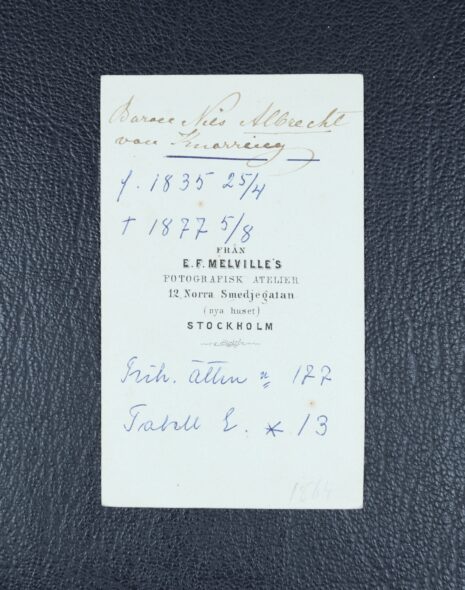 Baron Nils Albrecht
von Knorring
f. 1835 25/4
† 1877 5/8
FRÅN
E. F. MELVILLE'S
FOTOGRAFISK ATELIER
12 Norra Smedjegatan
(nya huset)
STOCKHOLM
Frih. ätten n 177
Tabell E. * 13
1864